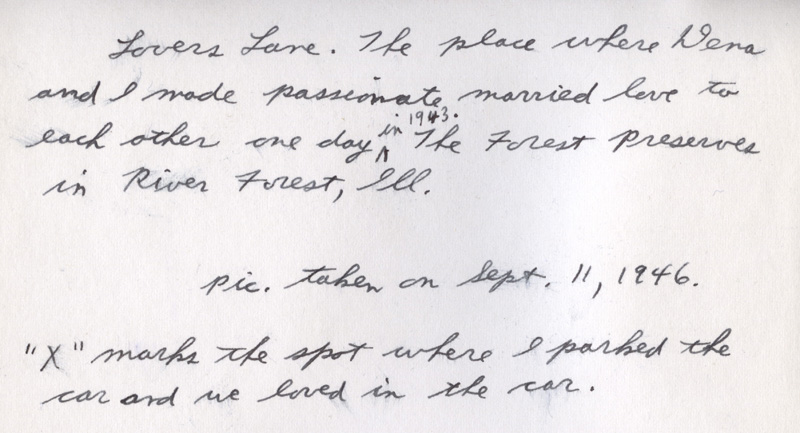 Lovers Lane. The place where Dena
and I made passionate married love to
each other one day in 1943. The Forest Preserves
in River Forest, Ill.
pic. taken on Sept. 11, 1946.
"X" marks the spot where I parked the
car and we loved in the car.